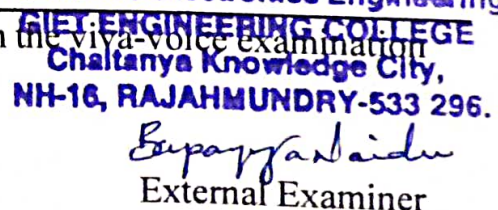 Engineering
GIET ENGINEERING COLLEGE
n the viva-voice examination
Chaitanya Knowledge City,
NH-16, RAJAHMUNDRY-533 296.
External Examiner